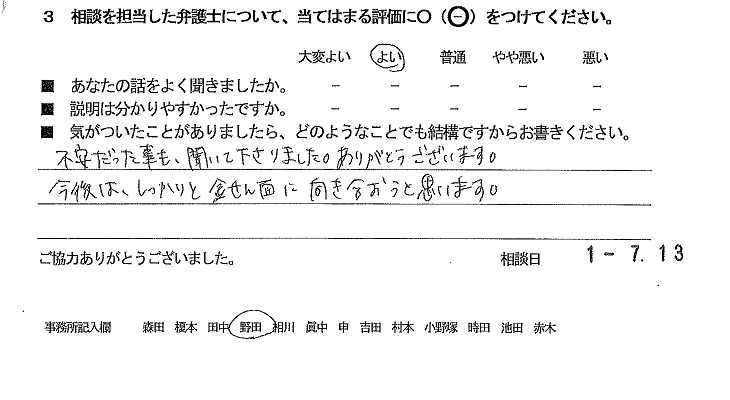 3 相談を担当した弁護士について、当てはまる評価に〇(⊖)をつけてください。
大変よい よい 普通 やや悪い 悪い
■ あなたの話をよく聞きましたか。 － － － － －
■ 説明は分かりやすかったですか。 － － － － －
■ 気がついたことがありましたら、どのようなことでも結構ですからお書きください。
不安だった事も、聞いて下さりました。ありがとうございます。
今後は、しっかりと金せん面に向き合おうと思います。
ご協力ありがとうございました。 相談日 1-7.13
事務所記入欄 森田 榎本 田中 野田 相川 眞中 申 吉田 村本 小野塚 時田 池田 赤木